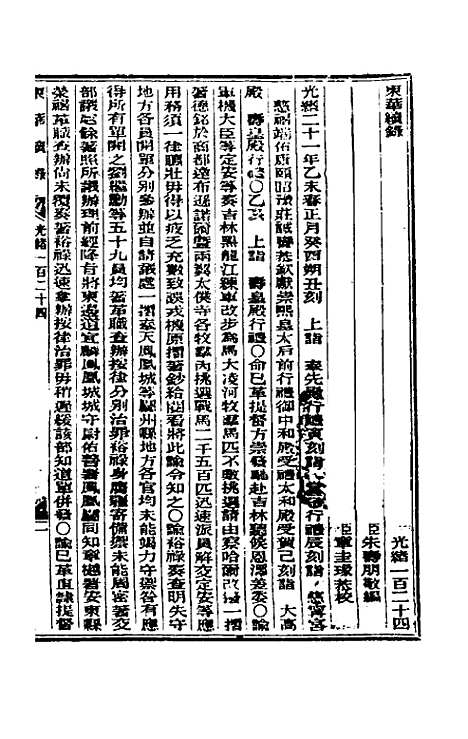 東華續錄
光緒一百二十四
臣朱壽朋敬編
臣 圭璋恭校
光緒二十一年乙未春正月癸酉朔丑刻 上詣 奉先殿行禮寅刻詣 行禮辰刻詣 慈寧宮
慈禧端佑康頤昭豫莊誠壽恭欽獻崇熙皇太后前行禮御中和殿受禮太和殿受賀己刻詣 大高
殿 壽皇殿行禮○乙亥 上詣 壽皇殿行禮○命已革提督方崇發馳赴吉林聽候恩澤差委○諭
軍機大臣等定安等奏吉林黑龍江練軍改步爲馬大凌河牧羣馬匹不敷挑選請由察哈爾改撥一摺
著德銘於商都達布遜諾爾暨兩翼太僕寺各牧羣內挑選戰馬二千五百匹迅速派員解交定安等應
用務須一律膘壯毋得以疲乏充數致誤戎機原摺著鈔給閱看將此諭令知之○諭裕祿奏查明失守
地方各員開單分別參辦並自請議處一摺奉天鳳凰城等廳州縣地方各官均未能竭力守禦咎有應
得所有單開之 等五十九員均著革職查辦按律分別治罪裕祿身膺疆寄備禦未能周密著交
部議處餘著照所議辦理前經降旨將東邊道宜麟鳳凰城城守尉佑善署鳳凰廳同知章樾署安東縣
榮禧革職查辦尚未覆奏著裕祿迅速拿辦按律治罪毋稍遲緩該部知道單併發○諭已革直隸提督
東華續錄 光緒一百二十四 一